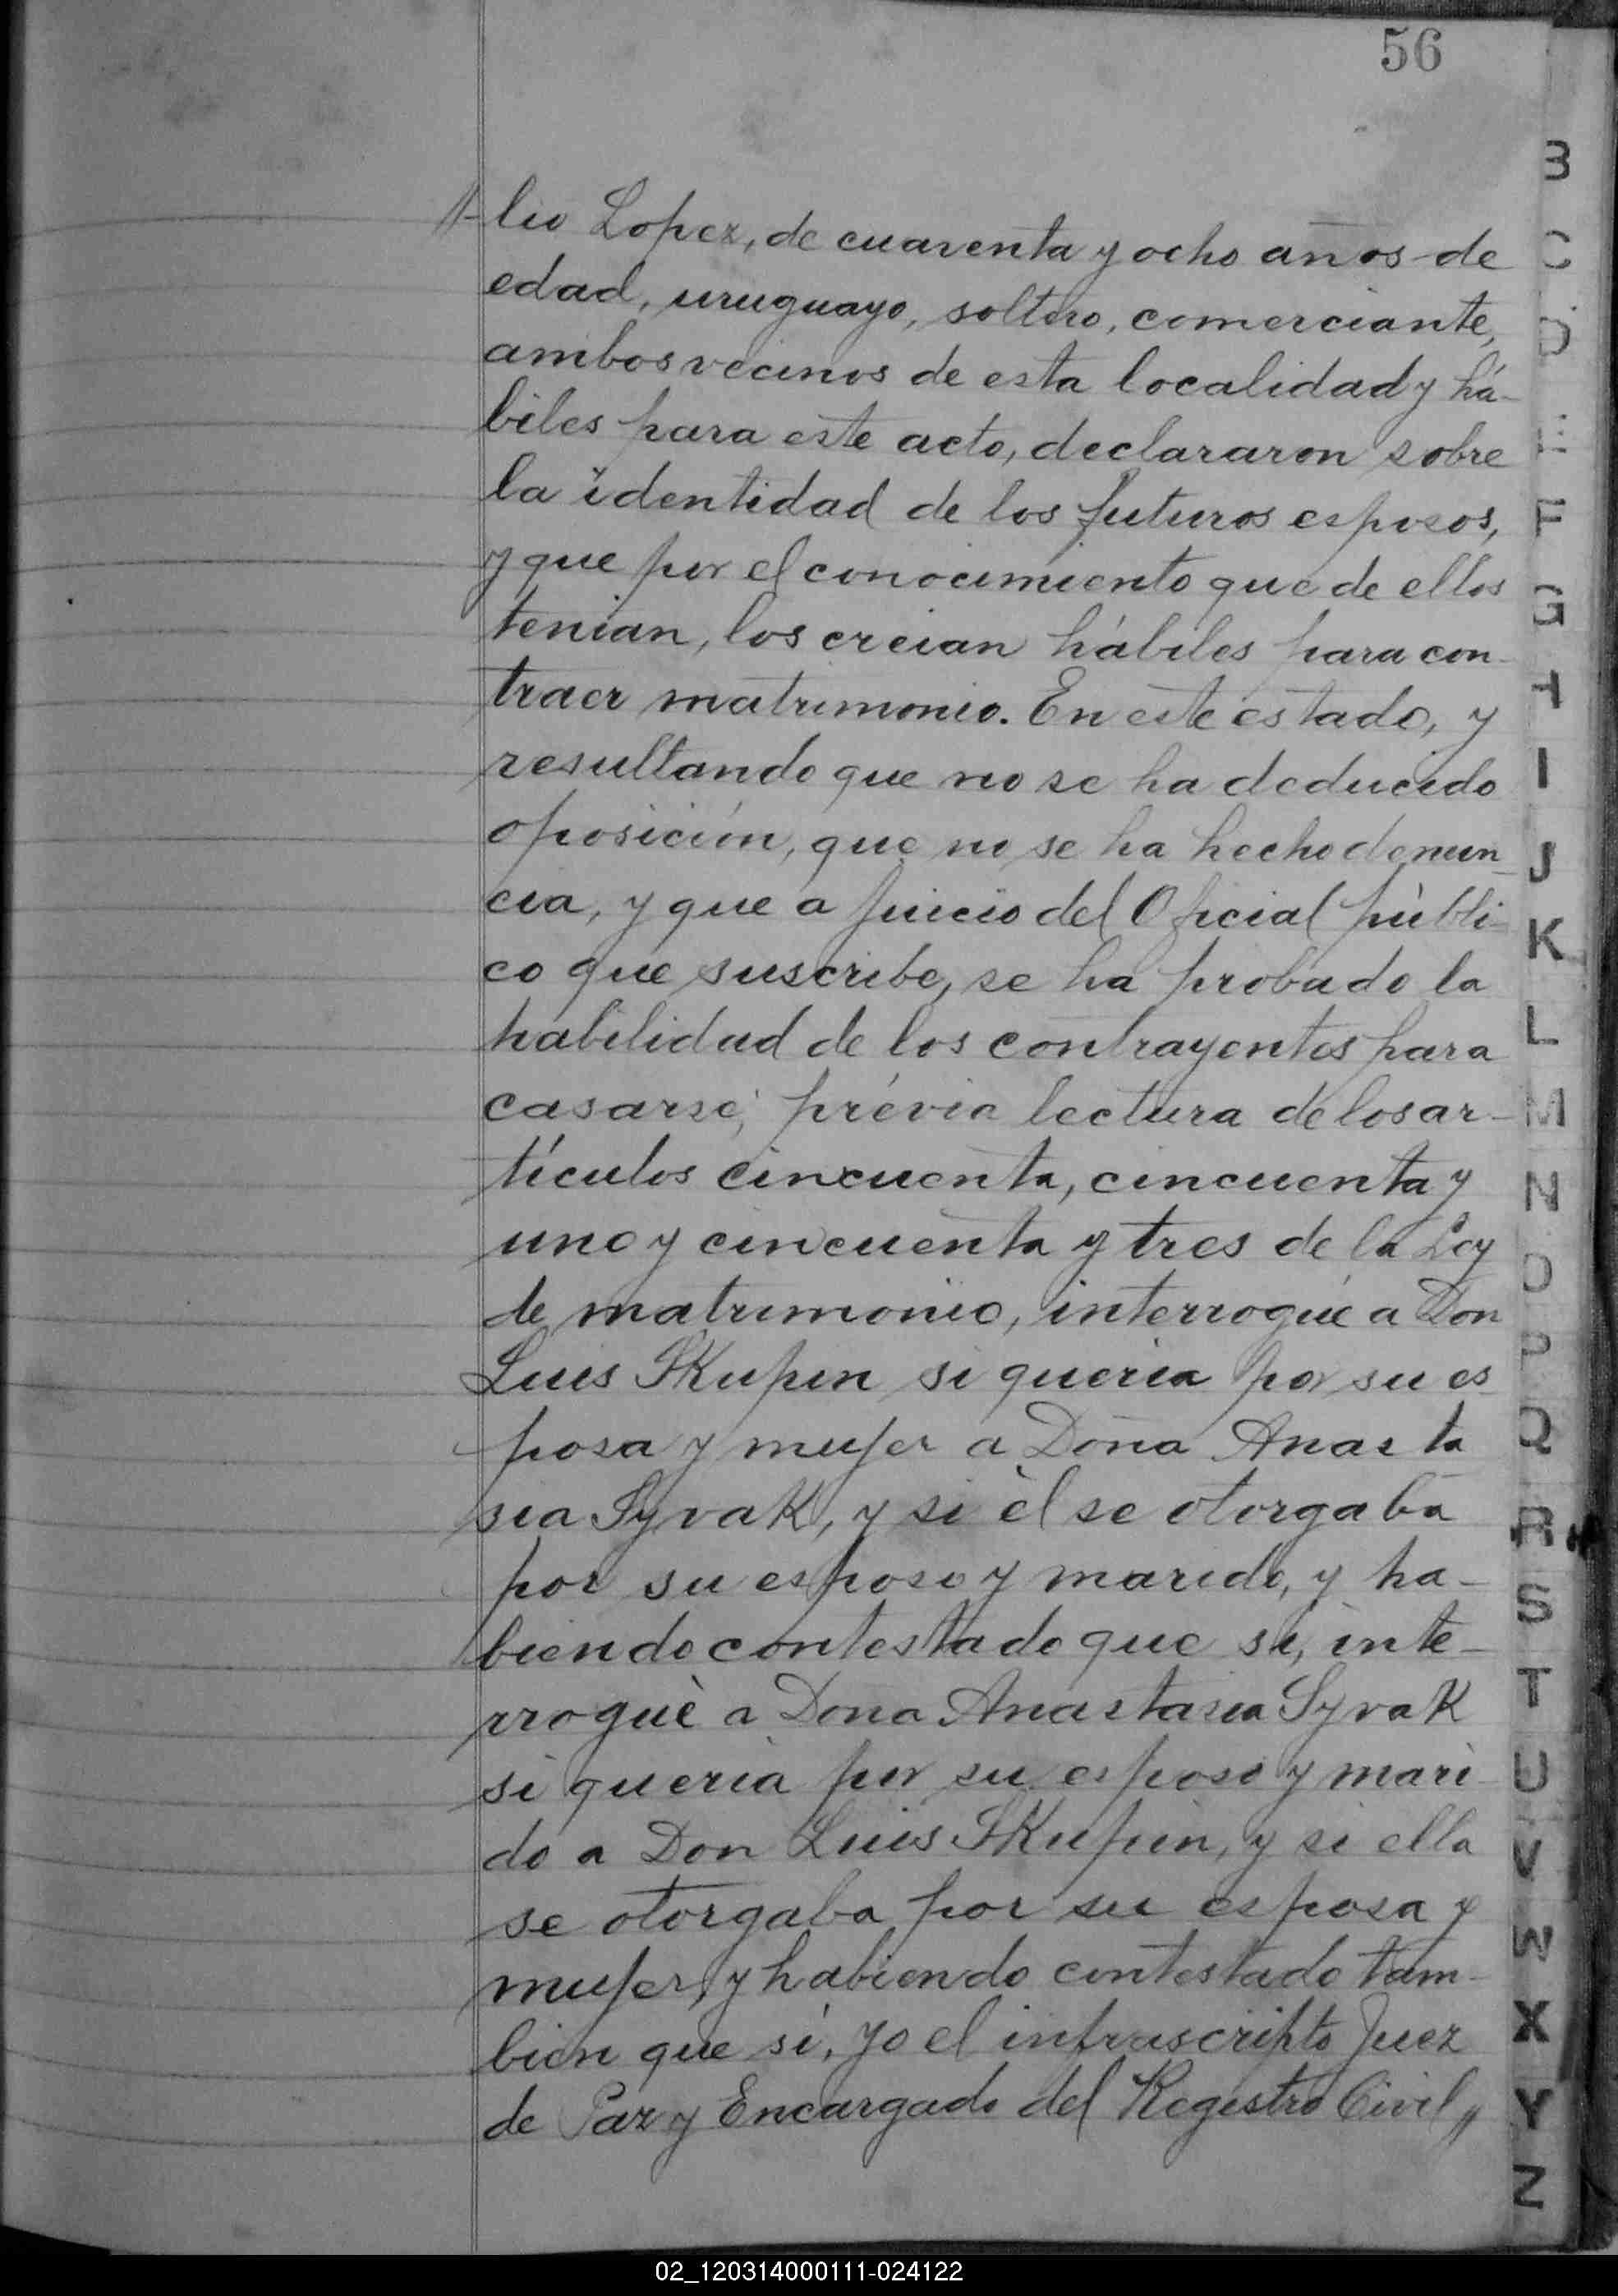 56
//-lio Lopez, de cuarenta y ocho años de
edad, uruguayo, soltero, comerciante,
ambos vecinos de esta localidad y há-
biles para este acto, declararon sobre
la identidad de los futuros esposos,
y que por el conocimiento que de ellos
tenian, los creian hábiles para con-
traer matrimonio. En este estado, y
resultando que no se ha deducido
oposición, que no se ha hecho denun-
cia, y que a juicio del Oficial públi-
co que suscribe, se ha probado la
habilidad de los contrayentes para
casarse; prévia lectura de los ar-
tículos cincuenta, cincuenta y
uno y cincuenta y tres de la Ley
de matrimonio, interrogué a Don
Luis SKupin si queria por su es-
posa y mujer a Doña Anasta
sia SyvaK, y si èl se otorgaba
por su esposo y marido, y ha-
biendo contestado que si, inte-
rroguè a Dona Anastasia SyvaK
si queria por su esposo y mari-
do a Don Luis SKupin, y si ella
se otorgaba por su esposa y
mujer, y habiendo contestado tam-
bien que sí, yo el infrascripto Juez
de Paz y Encargado del Registro Civil //
B
C
D
E
F
G
H
I
J
K
L
M
N
O
P
Q
R
S
T
U
V
W
X
Y
Z
02_120314000111-024122